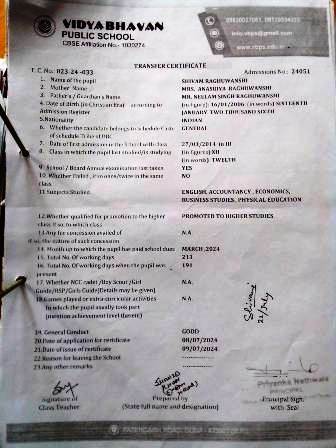 VIDYABHAVAN
PUBLIC SCHOOL
CBSE Affiliation No.- 1030274
TRANSFER CERTIFICATE
T. C. No.: 023-24-033 Admissions No: 24051
1. Name of the pupil SHIVAM RAGHUWANSHI
2. Mother Name MRS. ANASUIYA RAGHUWANSHI
3. Father's / Guardian's Name MR. NEELAM SINGH RAGHUWANSHI
4. Date of Birth (in Christian Era) according to (in figure) 16/01/2006 (in word) SIXTEENTH
Admission Register JANUARY TWO THOUSAND SIXTH
5. Nationality INDIAN
6. Whether the candidate belongs to Schedule Caste GENERAL
7. Date of first admission in the School with class 27/03/2014 in III
8. Class in which the pupil last studied/is studying (in figure) XII
(in word) TWELTH
9. School / Board Annual examination last taken YES
10. Whether failed, if so once/twice in the same NO
class
11. Subjects Studied ENGLISH, ACCOUNTANCY, ECONOMICS,
BUSINESS STUDIES, PHYSICAL EDUCATION
12. Whether qualified for promotion to the higher PROMOTED TO HIGHER STUDIES
class if so, to which class
13. Any fee concession availed of N.A.
if so, the nature of such concession
14. Month up to which the pupil has paid school dues MARCH, 2024
15. Total No. Of working days 213
16. Total No. Of working days the pupil was 191
present
17. Whether NCC cadet /Boy Scout /Girl N.A.
Guide/RSP/Girls Guide(Details may be given)
18. Games played or extra curricular activities N.A.
in which the pupil usually took part
(mention achievement level therein)
19. General Conduct GOOD
20. Date of application of certificate 08/07/2024
21. Date of issue of certificate 09/07/2024
22. Reason for leaving the School
23. Any other remarks
Priyanka
PRINCIPAL
Signature of Prepared by Principal Sign.
Class Teacher (State full name and designation) with Seal